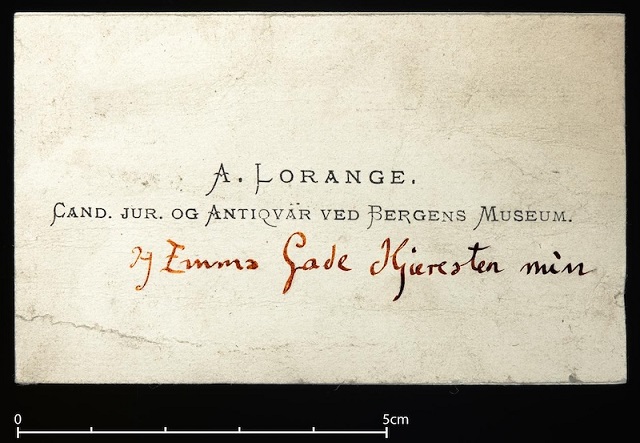 A. LORANGE.
CAND. JUR. OG ANTIQVÄR VED BERGENS MUSEUM.
Emma Gade Hjeresten min
0 5cm